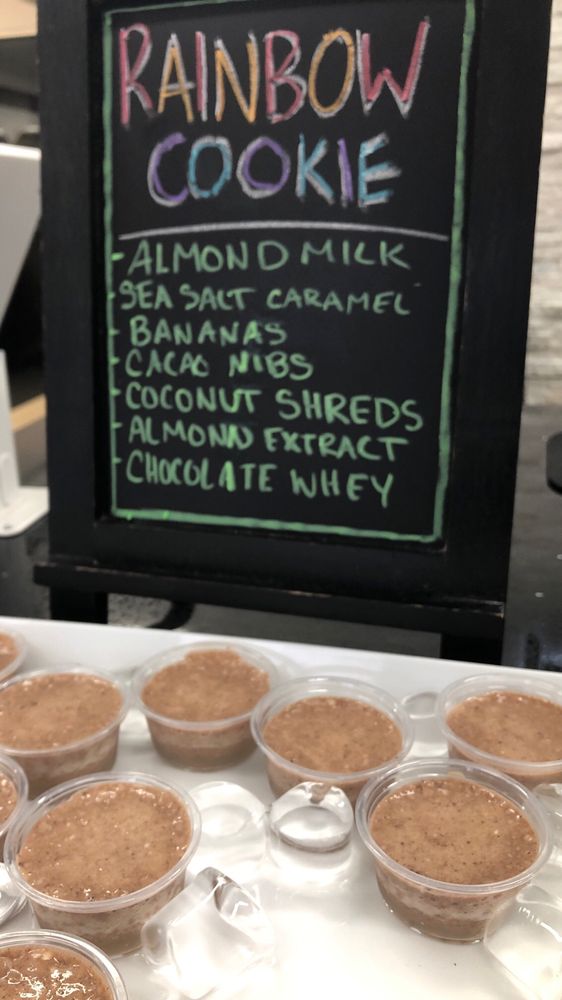 RAINBOW
COOKIE
- ALMOND MILK
- SEA SALT CARAMEL
- BANANAS
- CACAO NIBS
- COCONUT SHREDS
- ALMOND EXTRACT
- CHOCOLATE WHEY